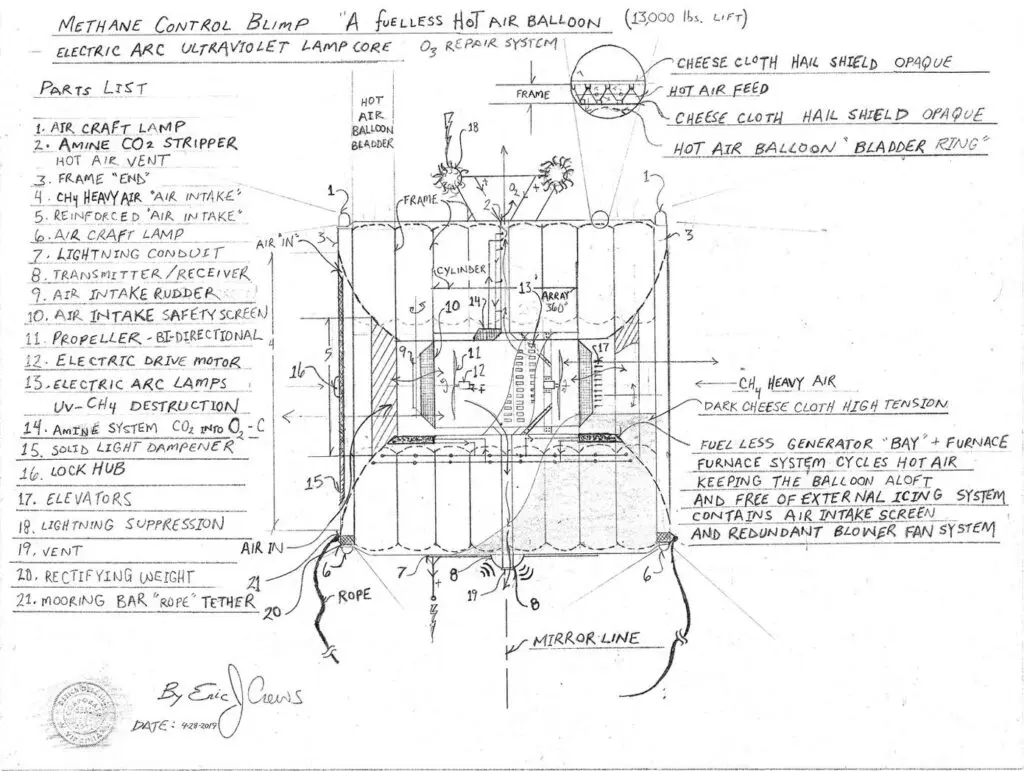 METHANE CONTROL BLIMP "A FUELLESS HOT AIR BALLOON (13,000 lbs. LIFT)
ELECTRIC ARC ULTRAVIOLET LAMP CORE O3 REPAIR SYSTEM
PARTS LIST
1. AIR CRAFT LAMP
2. AMINE CO2 STRIPPER
HOT AIR VENT
3. FRAME "END"
4. CH4 HEAVY AIR "AIR INTAKE"
5. REINFORCED "AIR INTAKE"
6. AIR CRAFT LAMP
7. LIGHTNING CONDUIT
8. TRANSMITTER/RECEIVER
9. AIR INTAKE RUDDER
10. AIR INTAKE SAFETY SCREEN
11. PROPELLER - BI-DIRECTIONAL
12. ELECTRIC DRIVE MOTOR
13. ELECTRIC ARC LAMPS
UV-CH4 DESTRUCTION
14. AMINE SYSTEM CO2 INTO O2-C
15. SOLID LIGHT DAMPENER
16. LOCK HUB
17. ELEVATORS
18. LIGHTNING SUPPRESSION
19. VENT
20. RECTIFYING WEIGHT
21. MOORING BAR "ROPE" TETHER
HOT
AIR
BALLOON
BLADDER
FRAME
CHEESE CLOTH HAIL SHIELD OPAQUE
HOT AIR FEED
CHEESE CLOTH HAIL SHIELD OPAQUE
HOT AIR BALLOON "BLADDER RING"
18
1
FRAME
2
O2
1
3
3
AIR "IN"
CYLINDER
13
14
ARRAY
360°
10
4
5
9
11
12
17
16
CH4 HEAVY AIR
DARK CHEESE CLOTH HIGH TENSION
FUEL LESS GENERATOR "BAY" + FURNACE
FURNACE SYSTEM CYCLES HOT AIR
KEEPING THE BALLOON ALOFT
AND FREE OF EXTERNAL ICING SYSTEM
CONTAINS AIR INTAKE SCREEN
AND REDUNDANT BLOWER FAN SYSTEM
15
AIR IN
6
7
8
19
8
6
21
20
ROPE
MIRROR LINE
By Eric J Crews
DATE: 4-28-2019